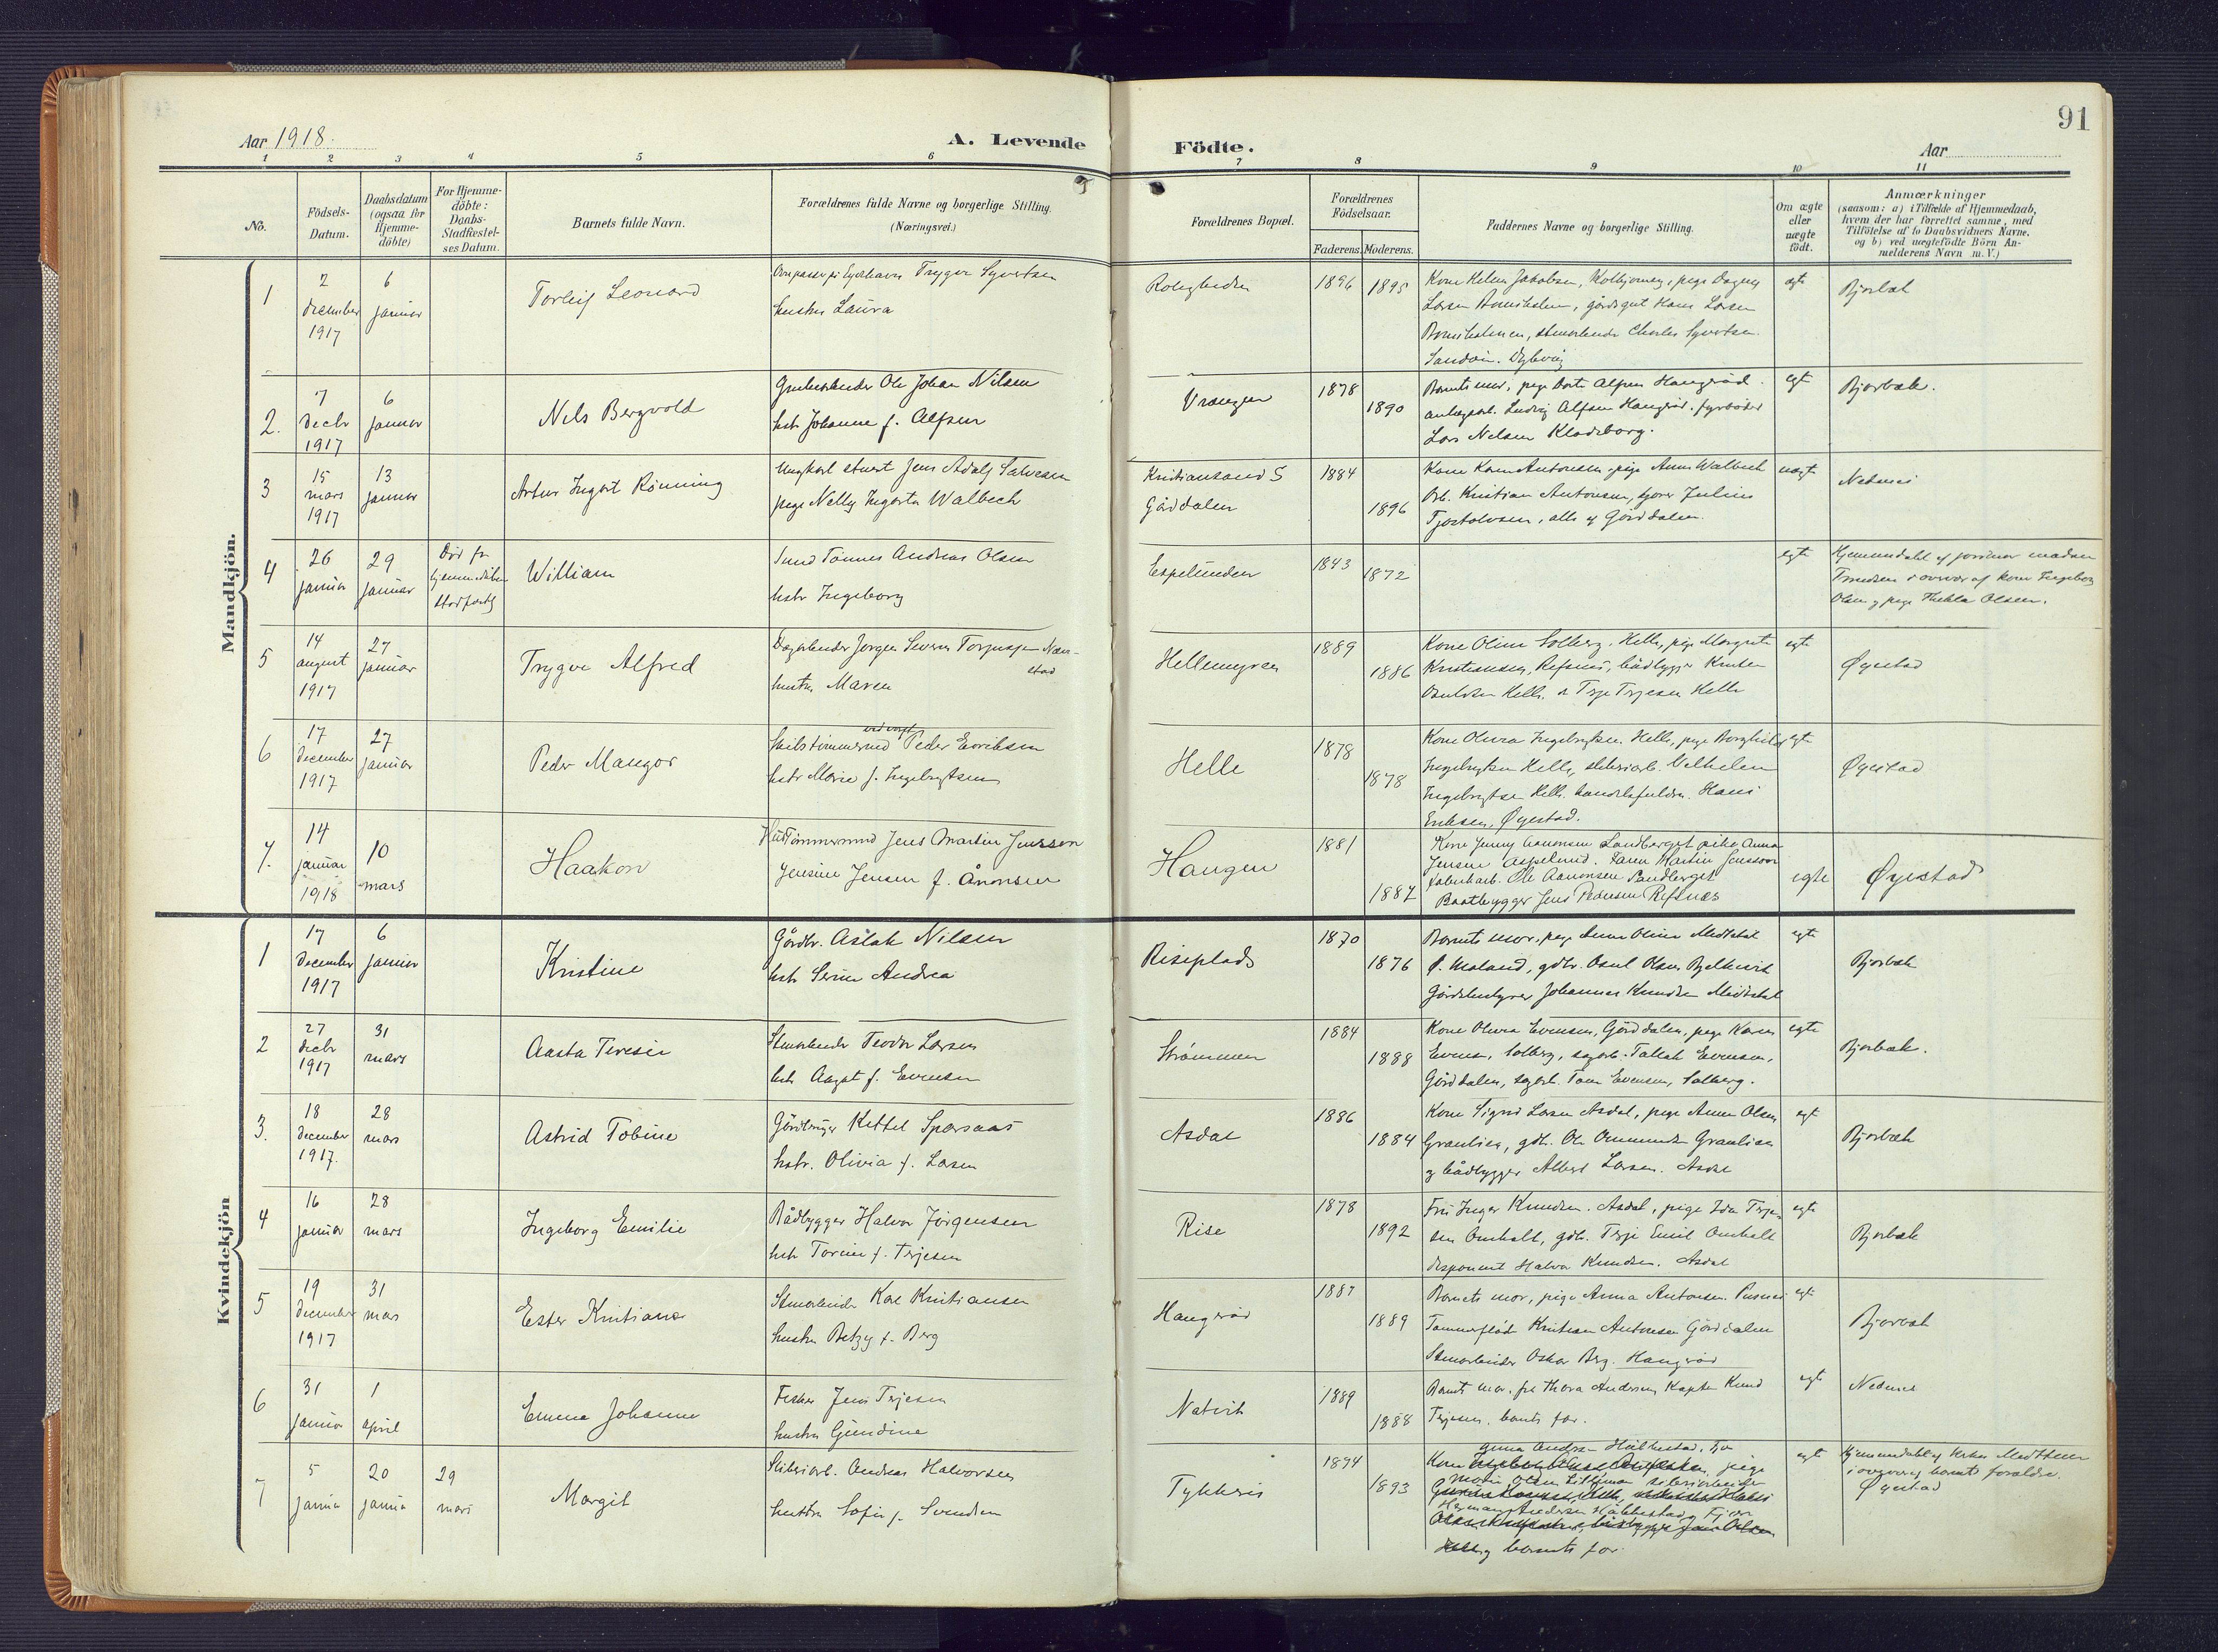 91
Aar 1918.
A. Levende Födte.
Aar
1 2 3 4 5 6 7 8 9 10 11
No.
Födsels-Datum.
Daabsdatum (ogsaa for Hjemmedöbte)
For Hjemmedöbte: Daabs-Stadfæstelses Datum.
Barnets fulde Navn.
Forældrenes fulde Navne og borgerlige Stilling.
(Næringsvei.)
Forældrenes Bopæl.
Forældrenes Födselsaar.
Faderens. Moderens.
Faddernes Navne og borgerlige Stilling.
Om ægte eller uægte födt.
Anmærkninger
(saasom: a) i Tilfælde af Hjemmedaab,
hvem der har forrettet samme, med
Tilföielse af to Daabsvidners Navne.
og b) ved uægtefödte Börn An-
melderens Navn m. V.)
Mandkjön.
1
2 december 1917
6 januar
Torleif Leonard
Trygve Syvertsen
hustru Laura
1896 1895
Kone Helene Jakobsen, Kolbjornsvig, pige Dagny
Larsen, gårdsgut Hans Larsen
Charles Syvertsen
Sandöin. Dybvåg
egte
Bjorbæk
2.
7 decbr 1917
6 januar
Nils Bergvold
Grubearbeider Ole Johan Nilsen
hstr Johanne f. Alfsen
Vrangen
1878 1890
Barnets mor, pige Alfsen Haugeröd.
Ludvig Alfsen Haugröd. fyrböder
Lars Nelsen Klodeborg.
egt
Bjorbæk.
3
15 mars 1917
13 januar
Artur Ingert Rönning
Ungkarl stuert Jens Adolf Salvesen
pige Nelly Ingerta Walbech
Kristiansand S
Görddalen
1884 1896
Kone Antonsen, pige Anna Walbech
Arb. Kristian Antonsen, Julius
Tjostolvsen, alle af Görddalen.
uegt
Nedenes
4
26 januar
29 januar
Död för hjemmedåben stadfæstet
William
Smed Tönnes Andreas Olsen
hstr Ingeborg
Espelunden
1843 1872
egte
Hjemmedøbt af jordmor madam
i overvær af kone Ingeborg
Olsen og pige Thekla Olsen.
5
14 august 1917
27 januar
Trygve Alfred
Dagarbeider Jorgen Severin
hustru Maren
Hellemyren
1889 1886
Kone Oline Solberg, Helle, pige Margrete
Kristiansen, Refsnes, bådbygger Knut
Helle. &amp; Terje Terjesen Helle
egte
Øyestad
6
17 december 1917
27 januar
Peder Mangor
Peder Eriksen
hstr Marie f. Ingebrigtsen
Helle
1878 1878
Kone Olivia Ingebrigtsen. Helle, pige Borghild
Ingebrigtsen Helle, sliberiarb. Vilhelm
Ingebrigtsen Helle. handelsfuldm. Hans
Eriksen, Øyestad.
egte
Øyestad
7.
14 januar 1918
10 mars
Haakon
Hustömmermand Jens Martin Jensson
Jensine Jensen f. Åronsen
Haugen
1881 1887
Kone Jenny Aanonsen Sandberget pike Anna
Jensen Aspelund. Faren Martin Jensson
fabrikarb. Ole Aanonsen Sandberget
Baatbygger Jens Pedersen Refsnes
egte
Øyestad
Kvindekjön
1
17 december 1917
6 januar
Kristine
Gårdbr. Aslak Nilsen
hstr Serine Andrea
Riseplads
1870 1876
Barnets mor, pige Anna Oline Medstøl
gdbr. Osul Olsen
Gårdbestyrer Johannes Knudsen
egte
Bjorbæk
2
27 decbr 1917
31 mars
Aasta Teresie
Stenarbeider Teodor Larsen
hstr Aagot f. Evensen
Strømmen
1884 1888
Kone Olivia Evensen, Görddalen, pige Karen
Evensen, Solberg, sagarb. Tallak Evensen,
Görddalen, sagarb. Tom Evensen, Solberg.
egte
Bjorbæk.
3.
18 december 1917.
28 mars
Astrid Tobine
Gårdbruger Kittel Sparsaas
hstr. Olivia f. Larsen
Asdal
1886 1884
Kone Sigrid Larsen Asdal, pige Anna Olsen
Graulien, gdb. Ole Graulien
og bådbygger Albert Larsen. Asdal
egt
Bjorbæk
4
16 januar
28 mars
Ingeborg Emilie
Bådbygger Halvor Jörgensen
hstr Torine f. Terjesen
Rise
1878 1892
Fru Inger Knudsen. Asdal, pige Ida Terje-
sen Omholt, gdb. Terje Emil Omholt
disponent Halvor Knudsen. Asdal
egte
Bjorbæk
5
19 december 1917
31 mars
Ester Kristiane
Stenarbeider Karl Kristiansen
hustru Betzy f. Berg
Haugeröd
1887 1889
Barnets mor, pige Anna Antonsen
Tømmerfløder Kristian Antonsen Görddalen
Stenarbeider Oskar Berg. Haugeröd
egt
Bjorbæk
6
31 januar
1 april
Emma Johanne
Fisker Jens Terjesen
hustru Gundine
Natvik
1889 1888
Barnets mor, frk Thora Andersen, Kaptein Knud
Terjesen, barnets far.
egt
Nedenes
7
5 januar
20 januar
29 mars
Margit
Sliberiarb. Andreas Halvorsen
hustru Sofie f. Svendsen
Tykkeris
1894 1893
Kone
pige
Marie Olsen
Herman Andersen
og barnets far.
egt
Hjemmedøbt af
i overvær af barnets forældre.
Øyestad